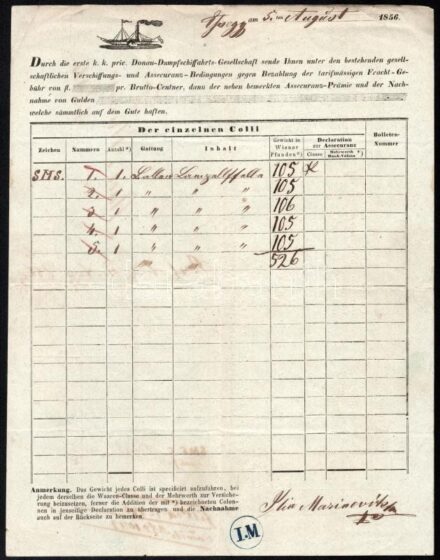 am 5. August 1856.
Durch die erste k. k. priv. Donau-Dampfschiffahrts-Gesellschaft sende Ihnen unter den bestehenden gesell-
schaftlichen Verschiffungs- und Assecuranz-Bedingungen gegen Bezahlung der tarifmässigen Fracht-Ge-
bühr von fl. pr. Brutto-Centner, dann der neben bemerkten Assecuranz-Prämie und der Nach-
nahme von Gulden
welche sämmtlich auf dem Gute haften.
Der einzelnen Colli
Zeichen Nummern Anzahl*) Gattung Inhalt Gewicht in Wiener Pfunden*) Declaration zur Assecuranz Classe Mehrwerth *) Bank-Valuta Bolleten-Nummer
SMS. 1. 1. 105
2. 1 " " " 105
3 1 " " " 106
4. 1 " " " 105
5. 1 " " " 105
526
Anmerkung. Das Gewicht jedes Colli ist specificirt aufzuführen, bei
jedem derselben die Waaren-Classe und der Mehrwerth zur Versiche-
rung beizusetzen, ferner die Addition der mit *) bezeichneten Colon-
nen in jenseitige Declaration zu übertragen und die Nachnahme
auch auf der Rückseite zu bemerken.
Ilia Marinovits
I.M